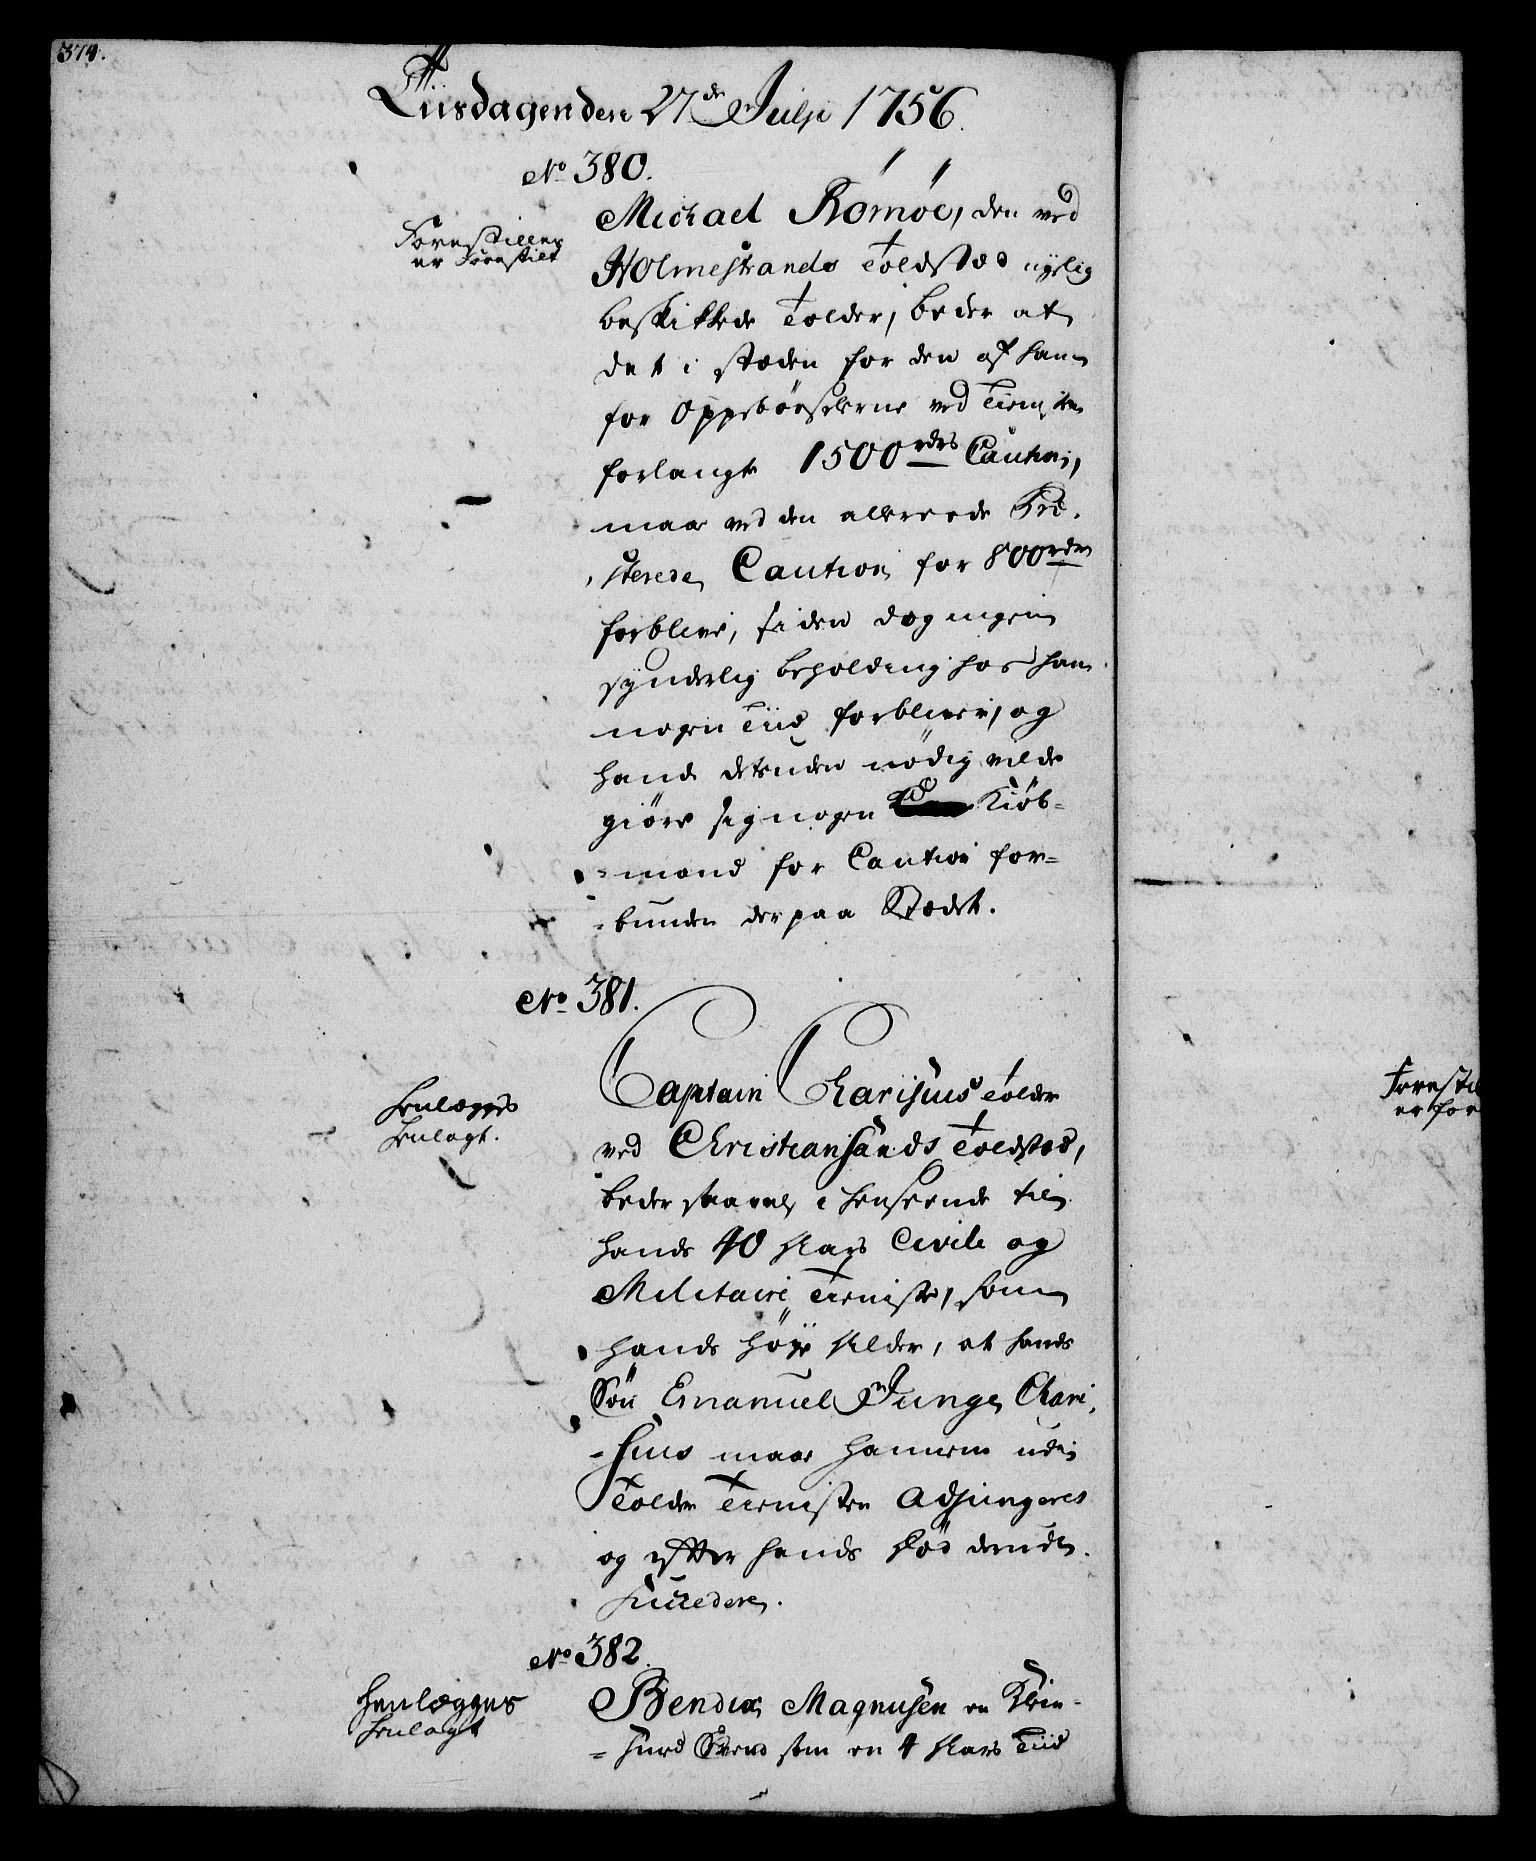 374.
Tiisdagen den 27de Julji 1756.
No 380.
Forestilles
er Forestilt
Michael Römöe, den ved
Holmestrands Toldsted nylig
beskikkede Tolder, beder at
det i stæden for den af ham
for Oppebörselerne ved Tienesten
forlangte 1500 rdrs Caution,
maae ved den allereede Præ-
sterede Caution for 800 rdr
forblive, siden dog ingen
synderlig beholding hos ham
nogen Tiid forbliver, og
hand desuden nödig vilde
giöre sig nogen Kiöb-
=mand for Caution for=
=bunden der paa Stædet.
No 381.
Henlægges
Henlagt.
Captain Charisius Tolder
ved Christiansands Toldsted,
beder saavel i henseende til
hands 40 Aars Civile og
Militaire Tieniste, som
hands höje Alder, at hands
Sön Emanuel Junge Chari-
=sius maae hannem udi
Tolder Tienisten Adjungeres
og efter hands Död derudi
Succedere.
No 382.
Henlægges
Henlagt
Bendix Magnusen en
=hued Svend som en 4 Aars Tiid
Forestil
er for